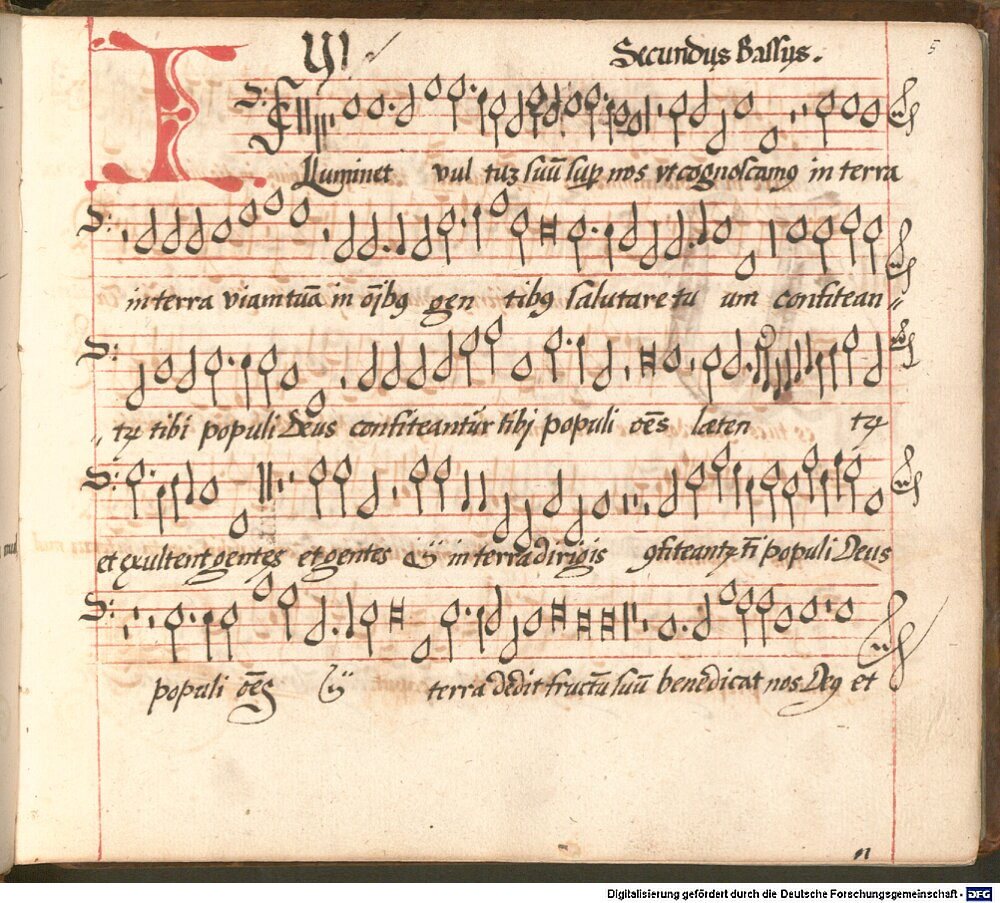 VI Secundus Bassus. 5
Illuminet vul tuʒ suū sup nos vt cognoscamꝰ in terra
in terra viam tuā in oībꝰ gen tibꝰ salutare tu um confitean
tꝛ tibi populi Deus confiteantur tibi populi oēs læten tꝛ
et exultent gentes et gentes ij in terra dirigis ꝯfiteantꝛ tī populi Deus
populi oēs ij terra dedit fructū suū benedicat nos Deꝰ et
Digitalisierung gefördert durch die Deutsche Forschungsgemeinschaft - DFG